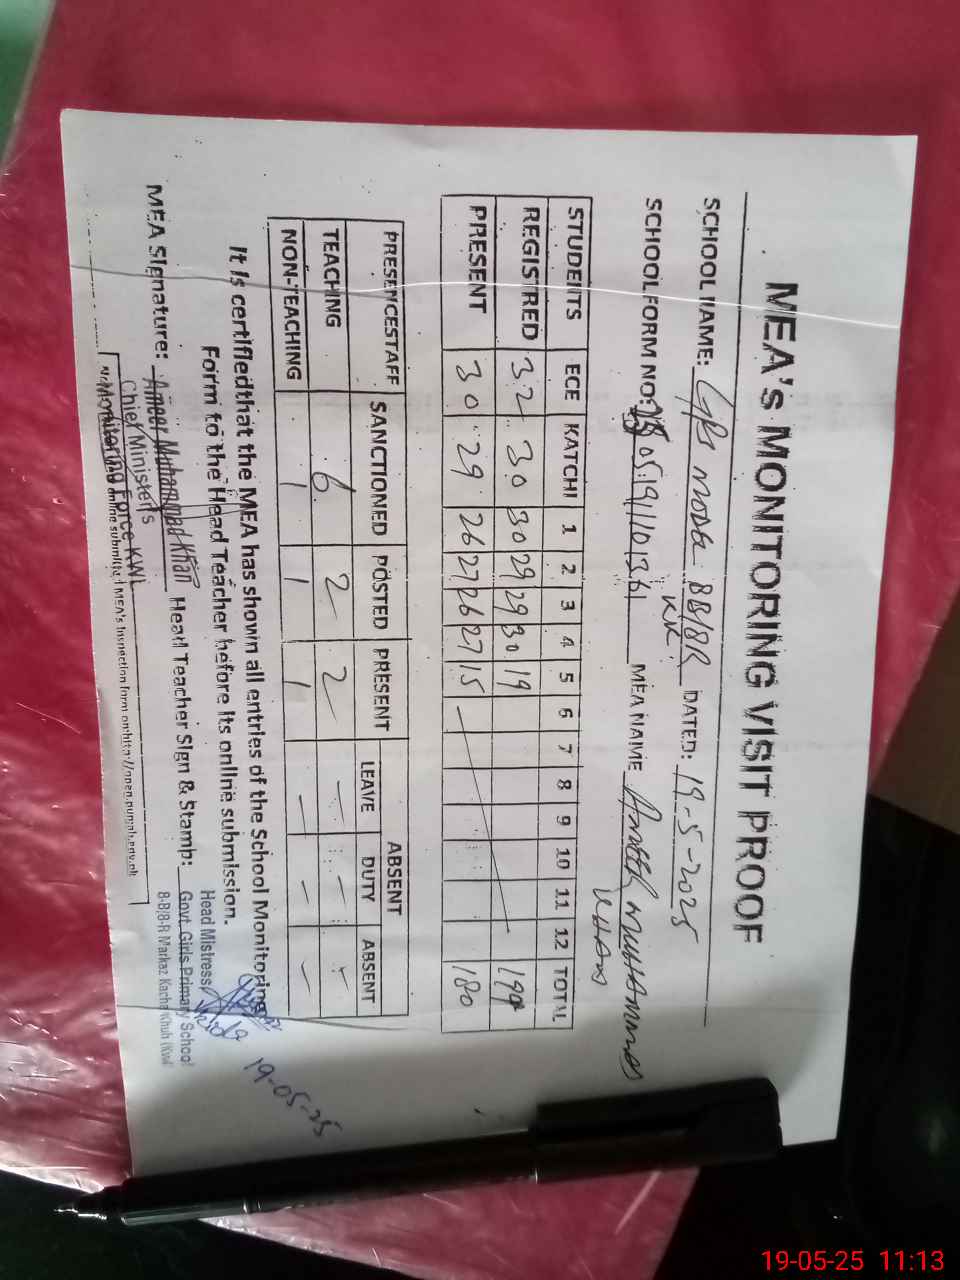 MEA'S MONITORING VISIT PROOF
SCHOOL NAME: GPS MODEL 8 BB/8R DATED: 19-5-2025
KK
SCHOOL FORM NO: 05191101361 MEA NAME AMEER MUHAMMAD
KHAN
STUDENTS ECE KATCHI 1 2 3 4 5 6 7 8 9 10 11 12 TOTAL
REGISTRED 32 30 30 29 29 30 19 199
PRESENT 30 29 26 27 26 27 15 180
PRESENCESTAFF SANCTIONED POSTED PRESENT ABSENT
LEAVE DUTY ABSENT
TEACHING 6 2 2 — — —
NON-TEACHING 1 1 1 — — —
It is certifiedthat the MEA has shown all entries of the School Monitoring
Form to the Head Teacher before its online submission.
MEA Signature: Ameer Muhammad Khan Head Teacher Sign & Stamp:
Chief Minister's
Monitoring Force KWL
online submitted MEA's Inspection form on http://open.punjab.gov.pk
Head Mistress
Govt. Girls Primary School
8-B/8-R Markaz Kacha Khuh (KWL
19-05-25
19-05-25 11:13